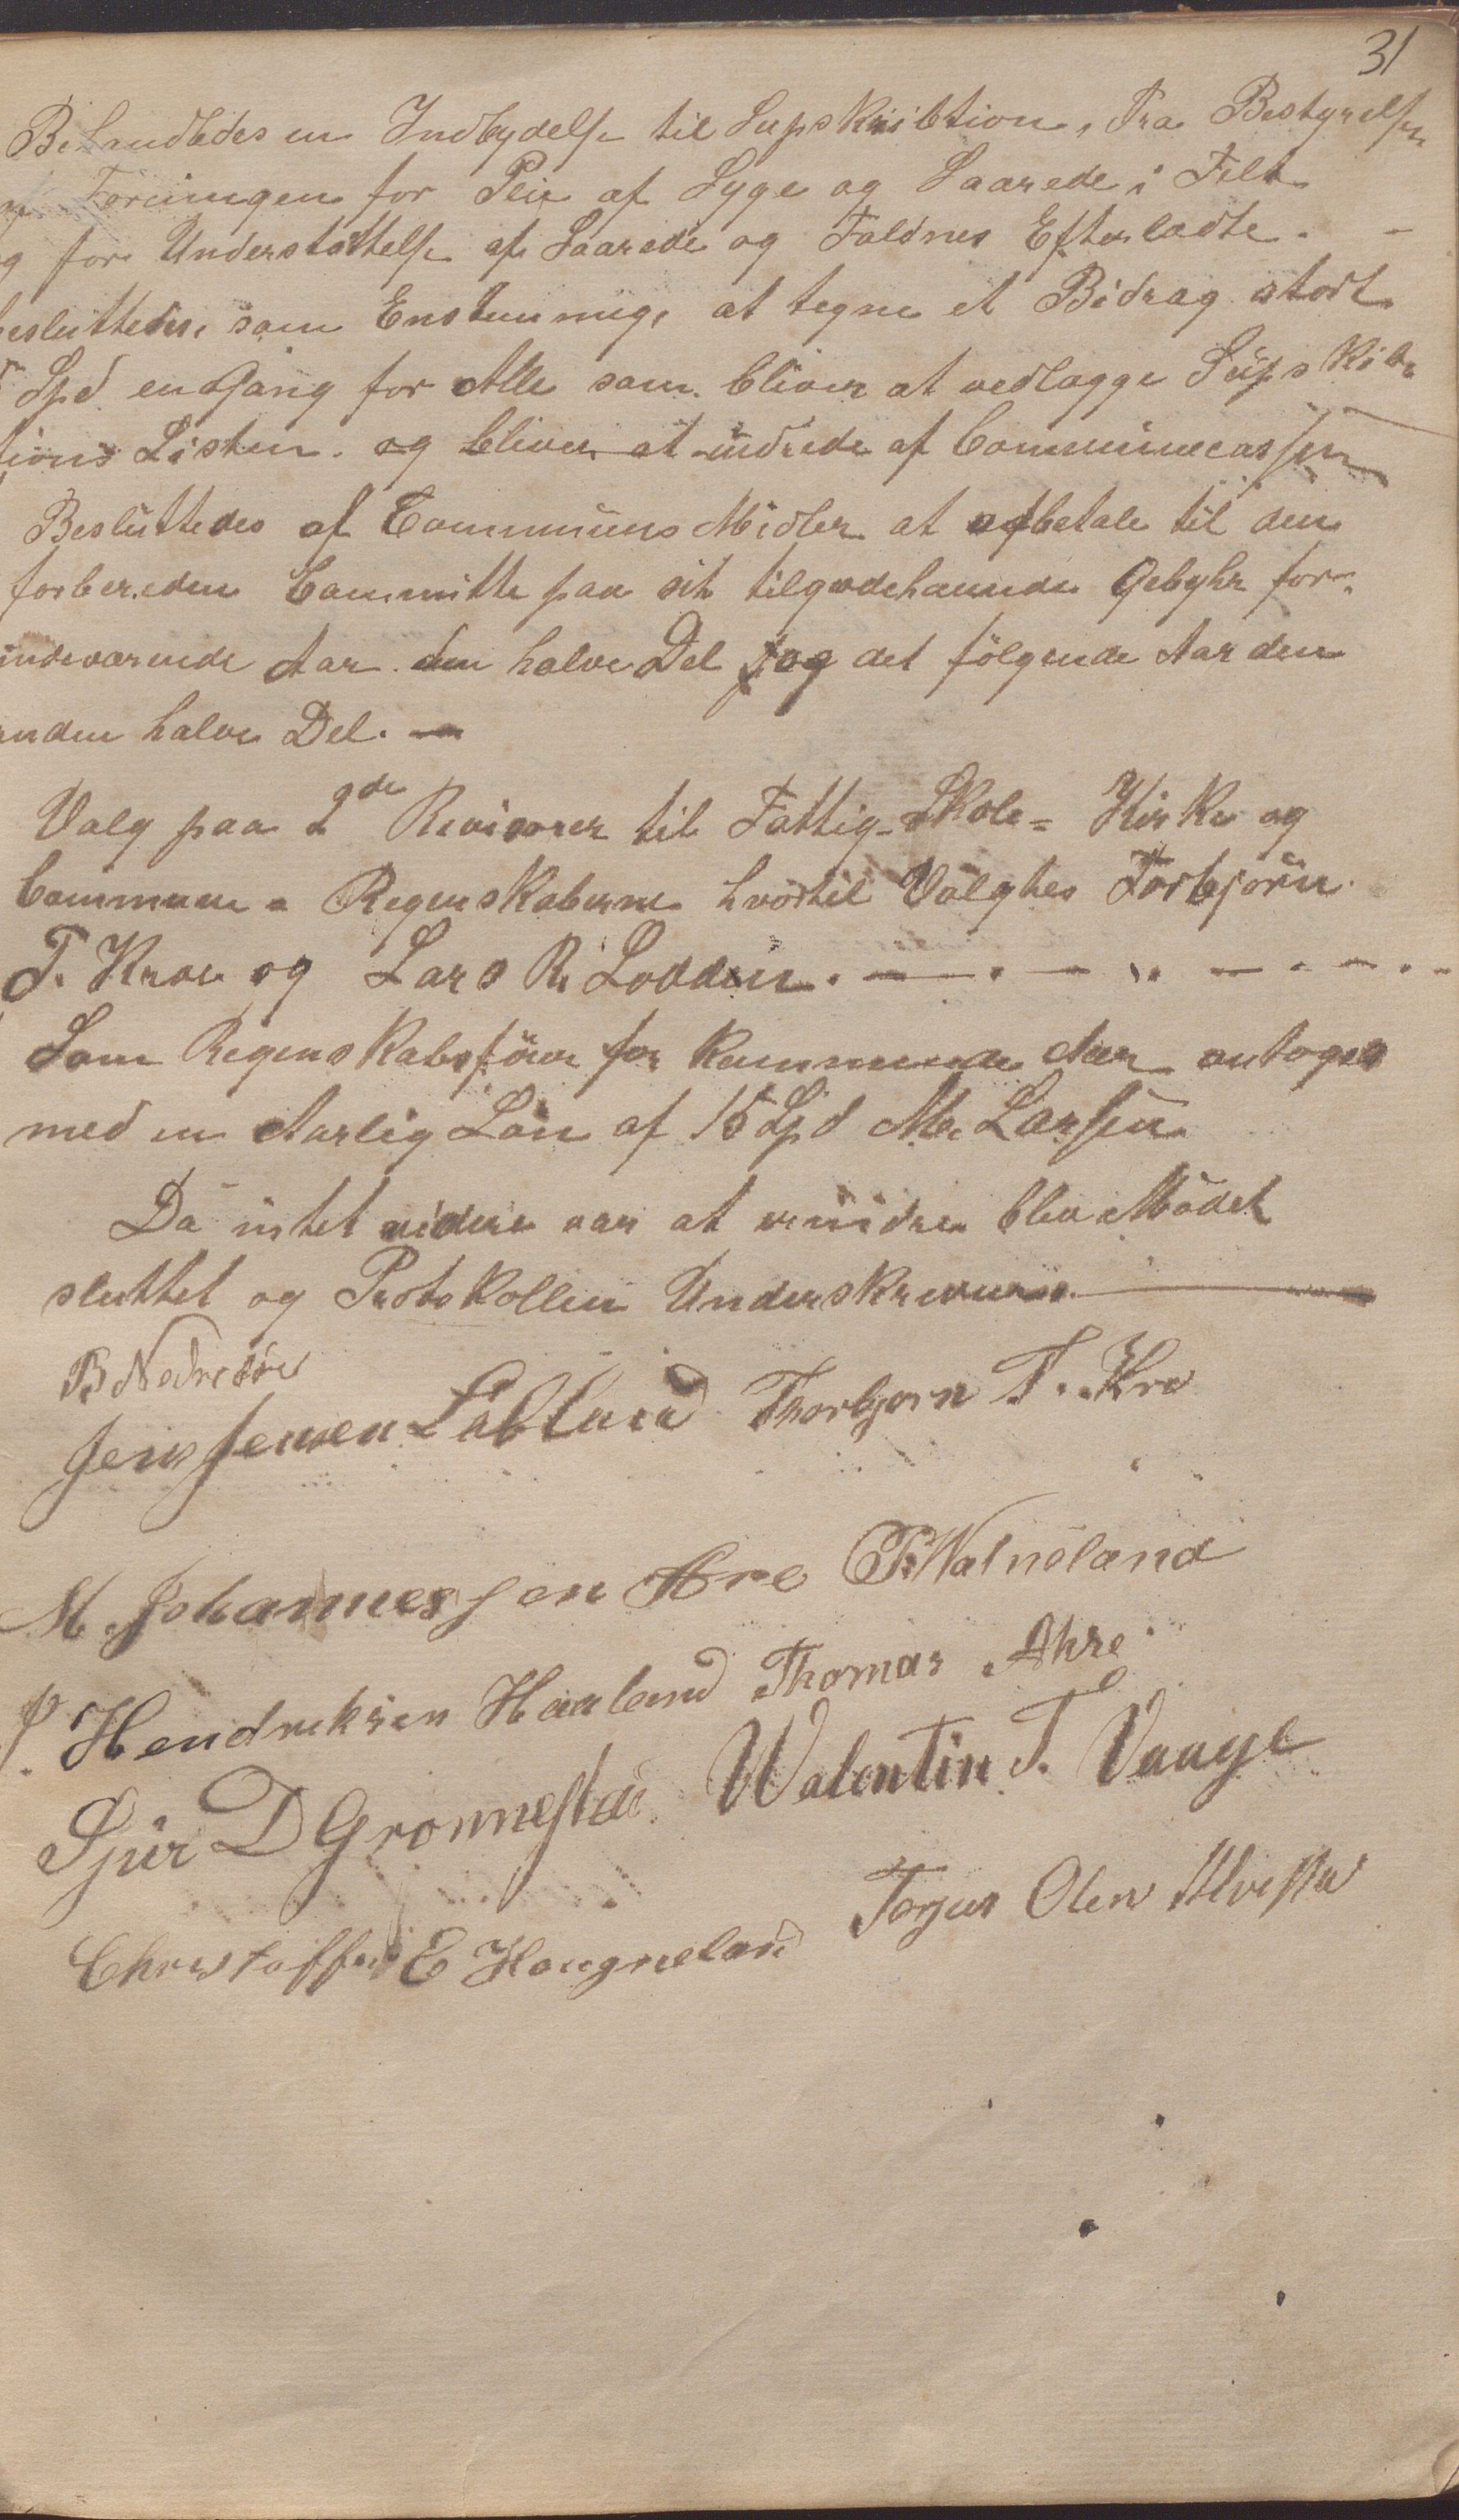 31
Behandledes en Indbydelse til Supskribtion, Fra Bestyrelsen
Foreningen for Pleie af Syge og Saarede i Felt
g for Understøttelse af Saarede og Faldnes Efterladte. -
besluttedes, som Enstemmig, at tegne et Bidrag stort
Spd engang for Alle som bliver at vedlægge Supskib-
tions Listen. og bliver at udrede af Communecassen
Besluttedes af Communs Midler at afbetale til den
forbereden Committe paa sit tilgodehavende Gebyhr for
indeværende Aar den halve Del og det følgende Aar den
anden halve Del. —
Valg paa 2de Revisorer til Fattig- Skole- Kirke og
Commune- Regenskaberne hvortil Valgtes Torbjörn
T. Kroe og Lars R. Lodden. — . — „ — . — . .
Som Regenskabsförer for kommende Aar antoges
med en Aarlig Lön af 15 Spd M. Larsen
Da intet videre var at blev Mödet
sluttet og Protokollen Underskreven. —
B Nedreaare
Jens Jensen Labland Thorbjorn T. Kro
M. Johannessen Are T. Walneland
P. Hendriksen Haaland Thomas Ahre
Sjur D Gronnestad Walentin T. Vaage
Christoffer E Haugneland Torger Olen Alvestad